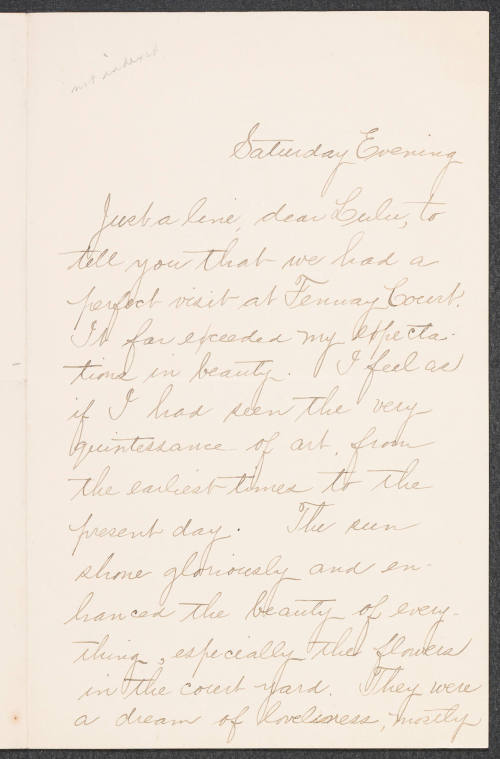 not indexed
Saturday Evening
Just a line, dear Lulu, to
tell you that we had a
perfect visit at Fenway Court.
It far exceeded my expecta-
tions in beauty. I feel as
if I had seen the very
quintessance of art, from
the earliest times to the
present day. The sun
shone gloriously and en-
hanced the beauty of every-
thing, especially the flowers
in the court yard. They were
a dream of loveliness, mostly